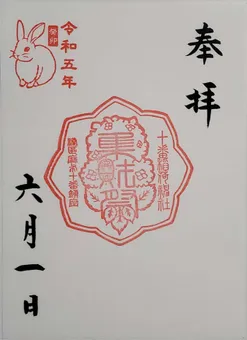 奉拝
十番稲荷神社
港區麻布十番鎮座
令和五年
癸卯
六月一日